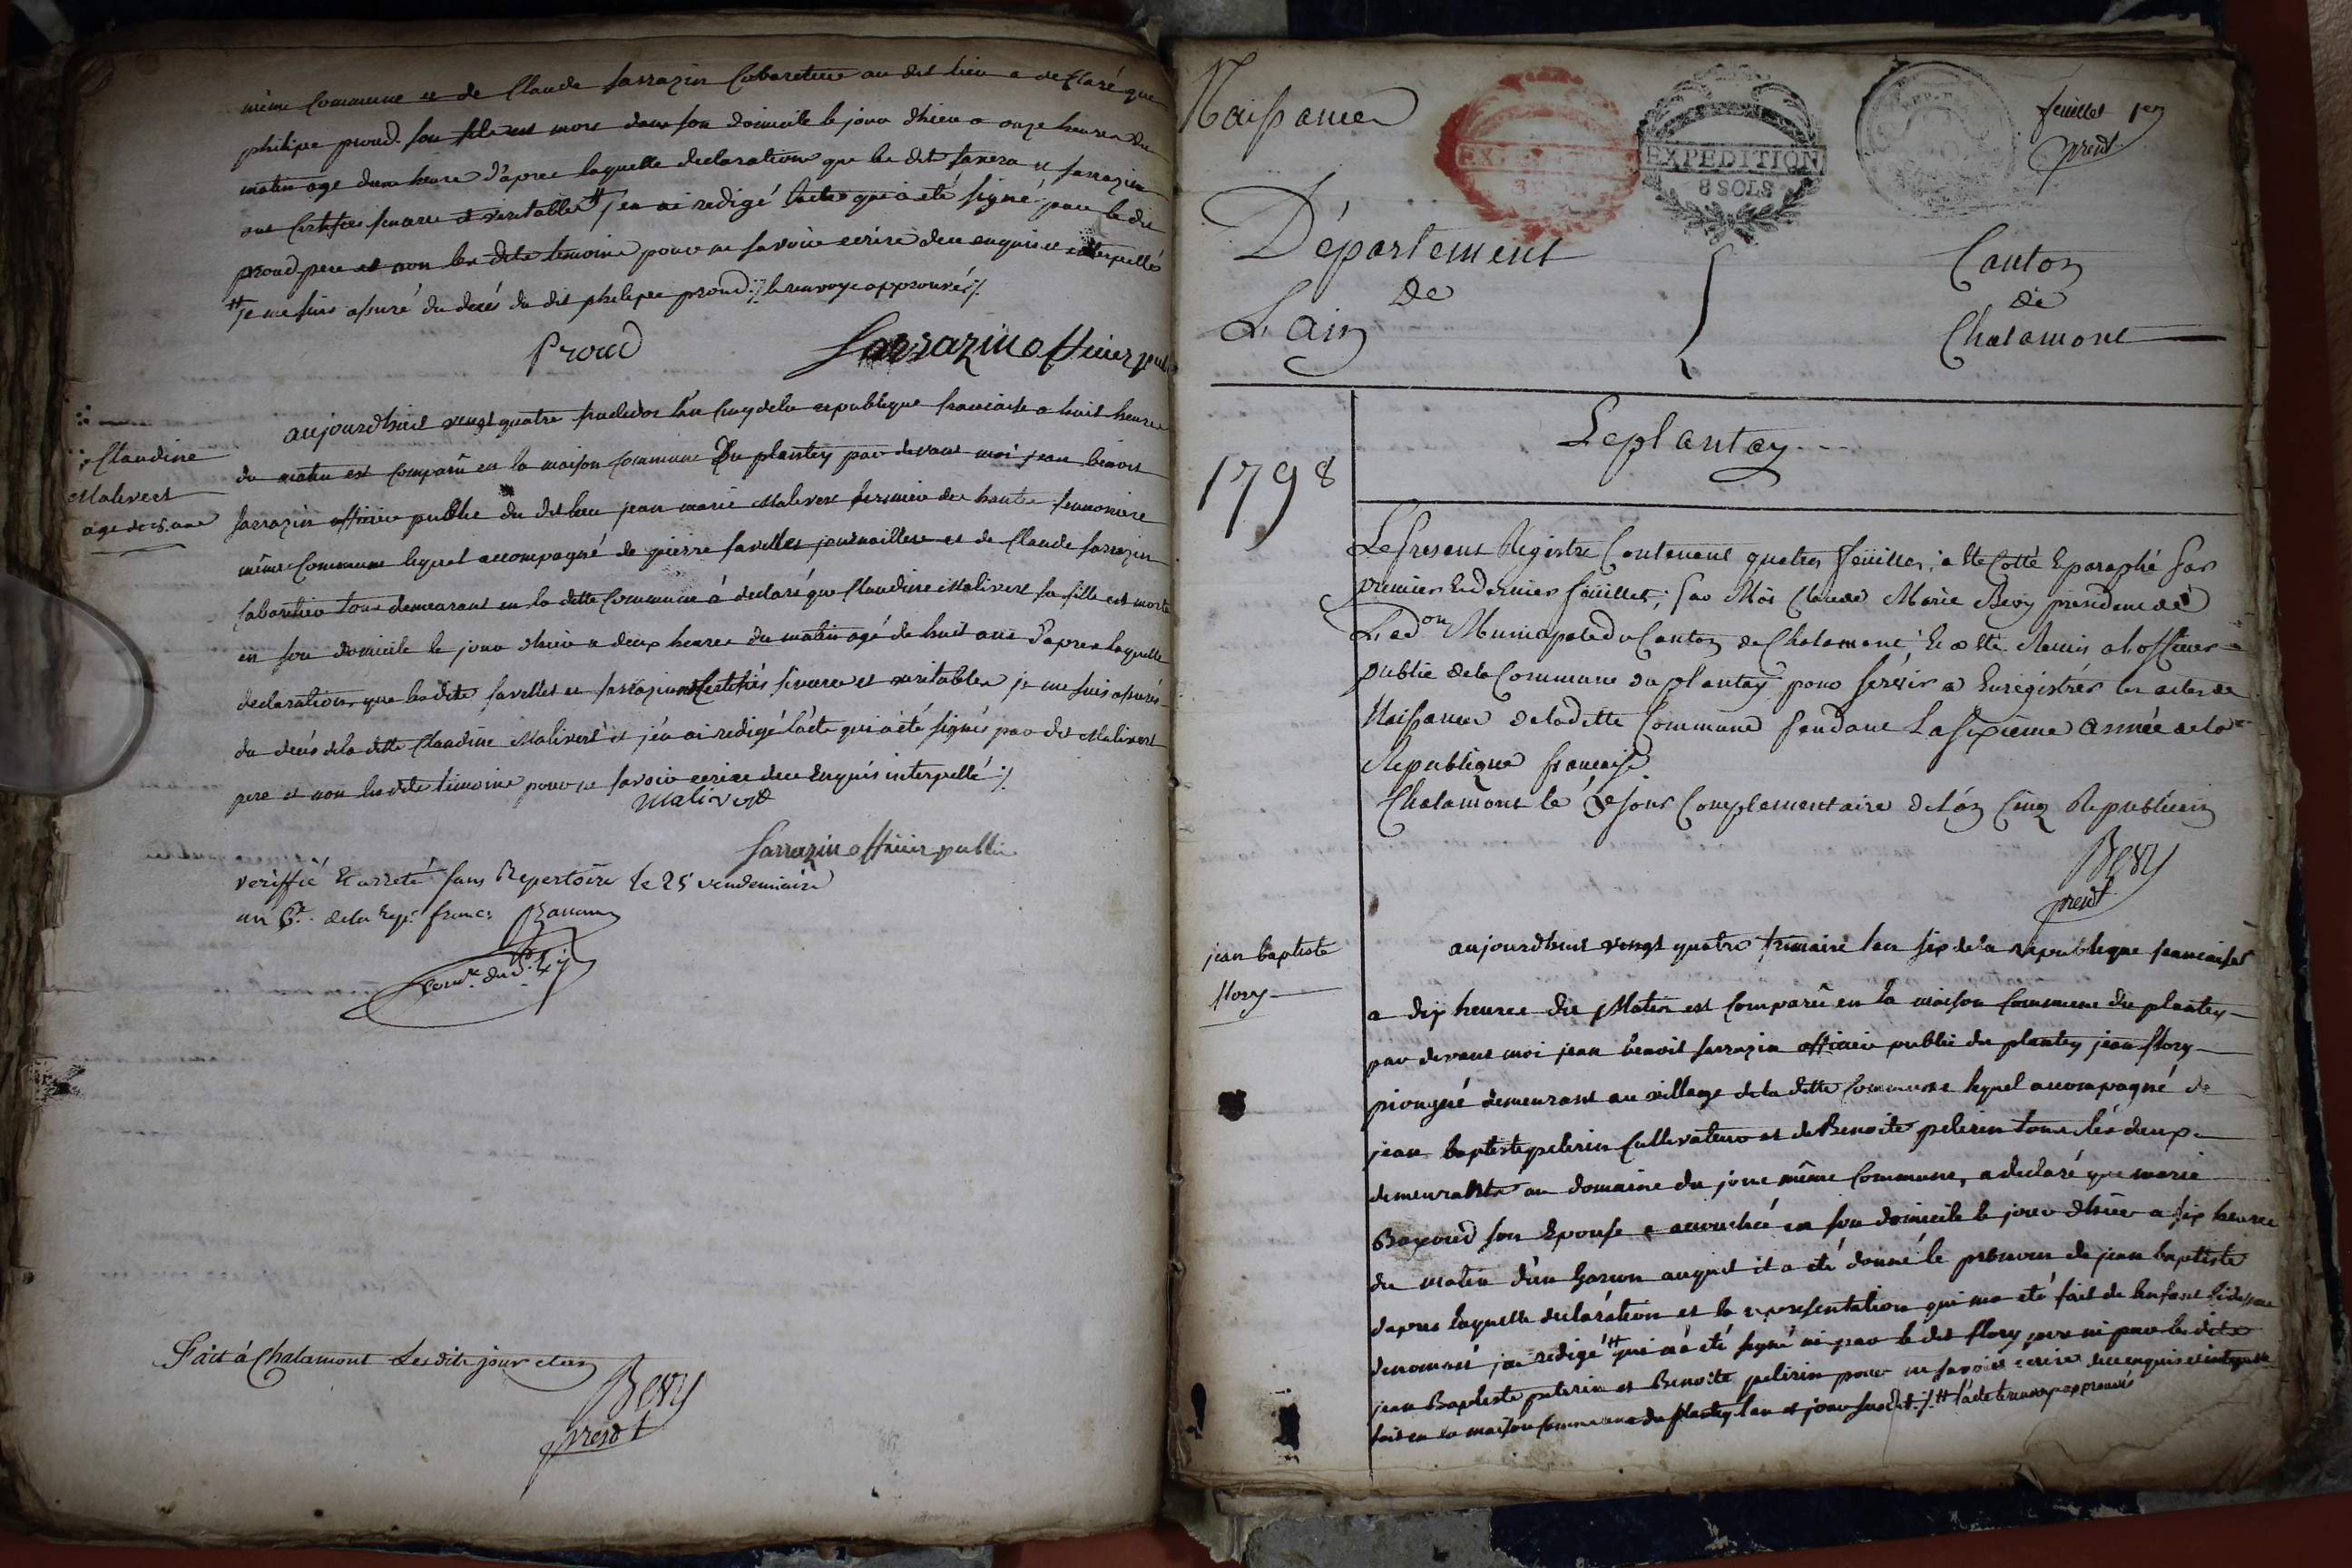 même Commune et de Claude Sarrazin Cabaretier au dit lieu a declaré que
philipe proud son fils est mort dans son domicile le jour d'hier a onze heures du
matin age dune heure d'apres laquelle declaration que les dits et sarrazin
ont Certifiés sincere et veritable # j'en ai redigé l'acte qui a été signé par le dit
proud pere et non les dits temoins pour ne savoir ecrire de ce enquis et interpellés
# je me suis assuré du decés du dit philipe proud ·/· le renvoye approuvés ·/·
Proud
Sarrazin officier publi
aujourdhuit vengt quatre fructidor l'an Cinq de la republique francaise a huit heures
Claudine
Malivert
age de 8. ans
du matin est Comparû en la maison Commune Du plantey par devant moi jean benoit
Sarrazin officier public du dit lieu jean marie Malivert fermier des hautes
même Commune lequel accompagné de pierre favelles journaillere et de Claude sarrazin
Cabaretier tous demeurant en la ditte Commune à declaré que Claudine Malivert sa fille est morte
en son domicile le jour d'hier a deux heures du matin agé de huit ans d'apres laquelle
declaration que les dits favelles et sarrazin ont Certifiés sincere et veritables je me suis assurés
du decés de la ditte Claudine Malivert et j'en ai redigé l'acte qui a été signés par dit Malivert
pere et non les dits temoins pour ne savoir ecrire de ce Enquis interpellé ·/·
Malivert
Sarrazin officier public
veriffié Et arreté sans Repertoire le 25 vendemiaire
an 6.e de la Rep.e franc.e
Fait à Chalamont Les dits jour et an
Bevy
presdt
Naissances
EXPEDITION
8 SOLS
feuillet 1er
presdt
Département
de
L'ain
Canton
de
Chalamont
1798
Leplantay
Le present Registre Contenant quatres feuilles, a ete Cotté Et paraphé par
premier Et dernier feuillet, par Moi Claude Marie Bevy president de
L'ad.on Municipale du Canton de Chalamont, Et a été Remis a l'officier
public de la Commune du plantay pour servir a Enregistrer les actes de
Naissances de la ditte Commune pendant La sixieme année de la
Republique francaise
Chalamont le jour Complementaire de l'an Cinq Republicain
Bevy
presdt
jean baptiste
flory
aujourdhuit vengt quatre frimaire l'an six de la republique francaise
a dix heures du Matin est Comparû en la maison Commune du plantey
par devant moi jean benoit sarrazin officier public du plantey jean flory
demeurant au village de la ditte Commune lequel accompagné de
jean baptiste pelerin Cultivateur et de Benoite pelerin tous les deux
demeurants au domaine du jonc même Commune, a declaré que marie
son Epouse a accouchée en son domicile le jour d'hier a six heures
du matin d'un Garson auquel il a été donné le prenom de jean baptiste
d'apres laquelle declaration et la representation qui ma eté fait de lenfant cidessus
denommé jai redigé # qui n'a été signé ni par le dit flory pere ni par les dits
jean Baptiste pelerin et Benoite pelirin pour ne savoir ecrire de ce enquis et interpellés
fait en la maison Commune du plantey l'an et jour susdit ·/· # l'acte le renvoy approuvés